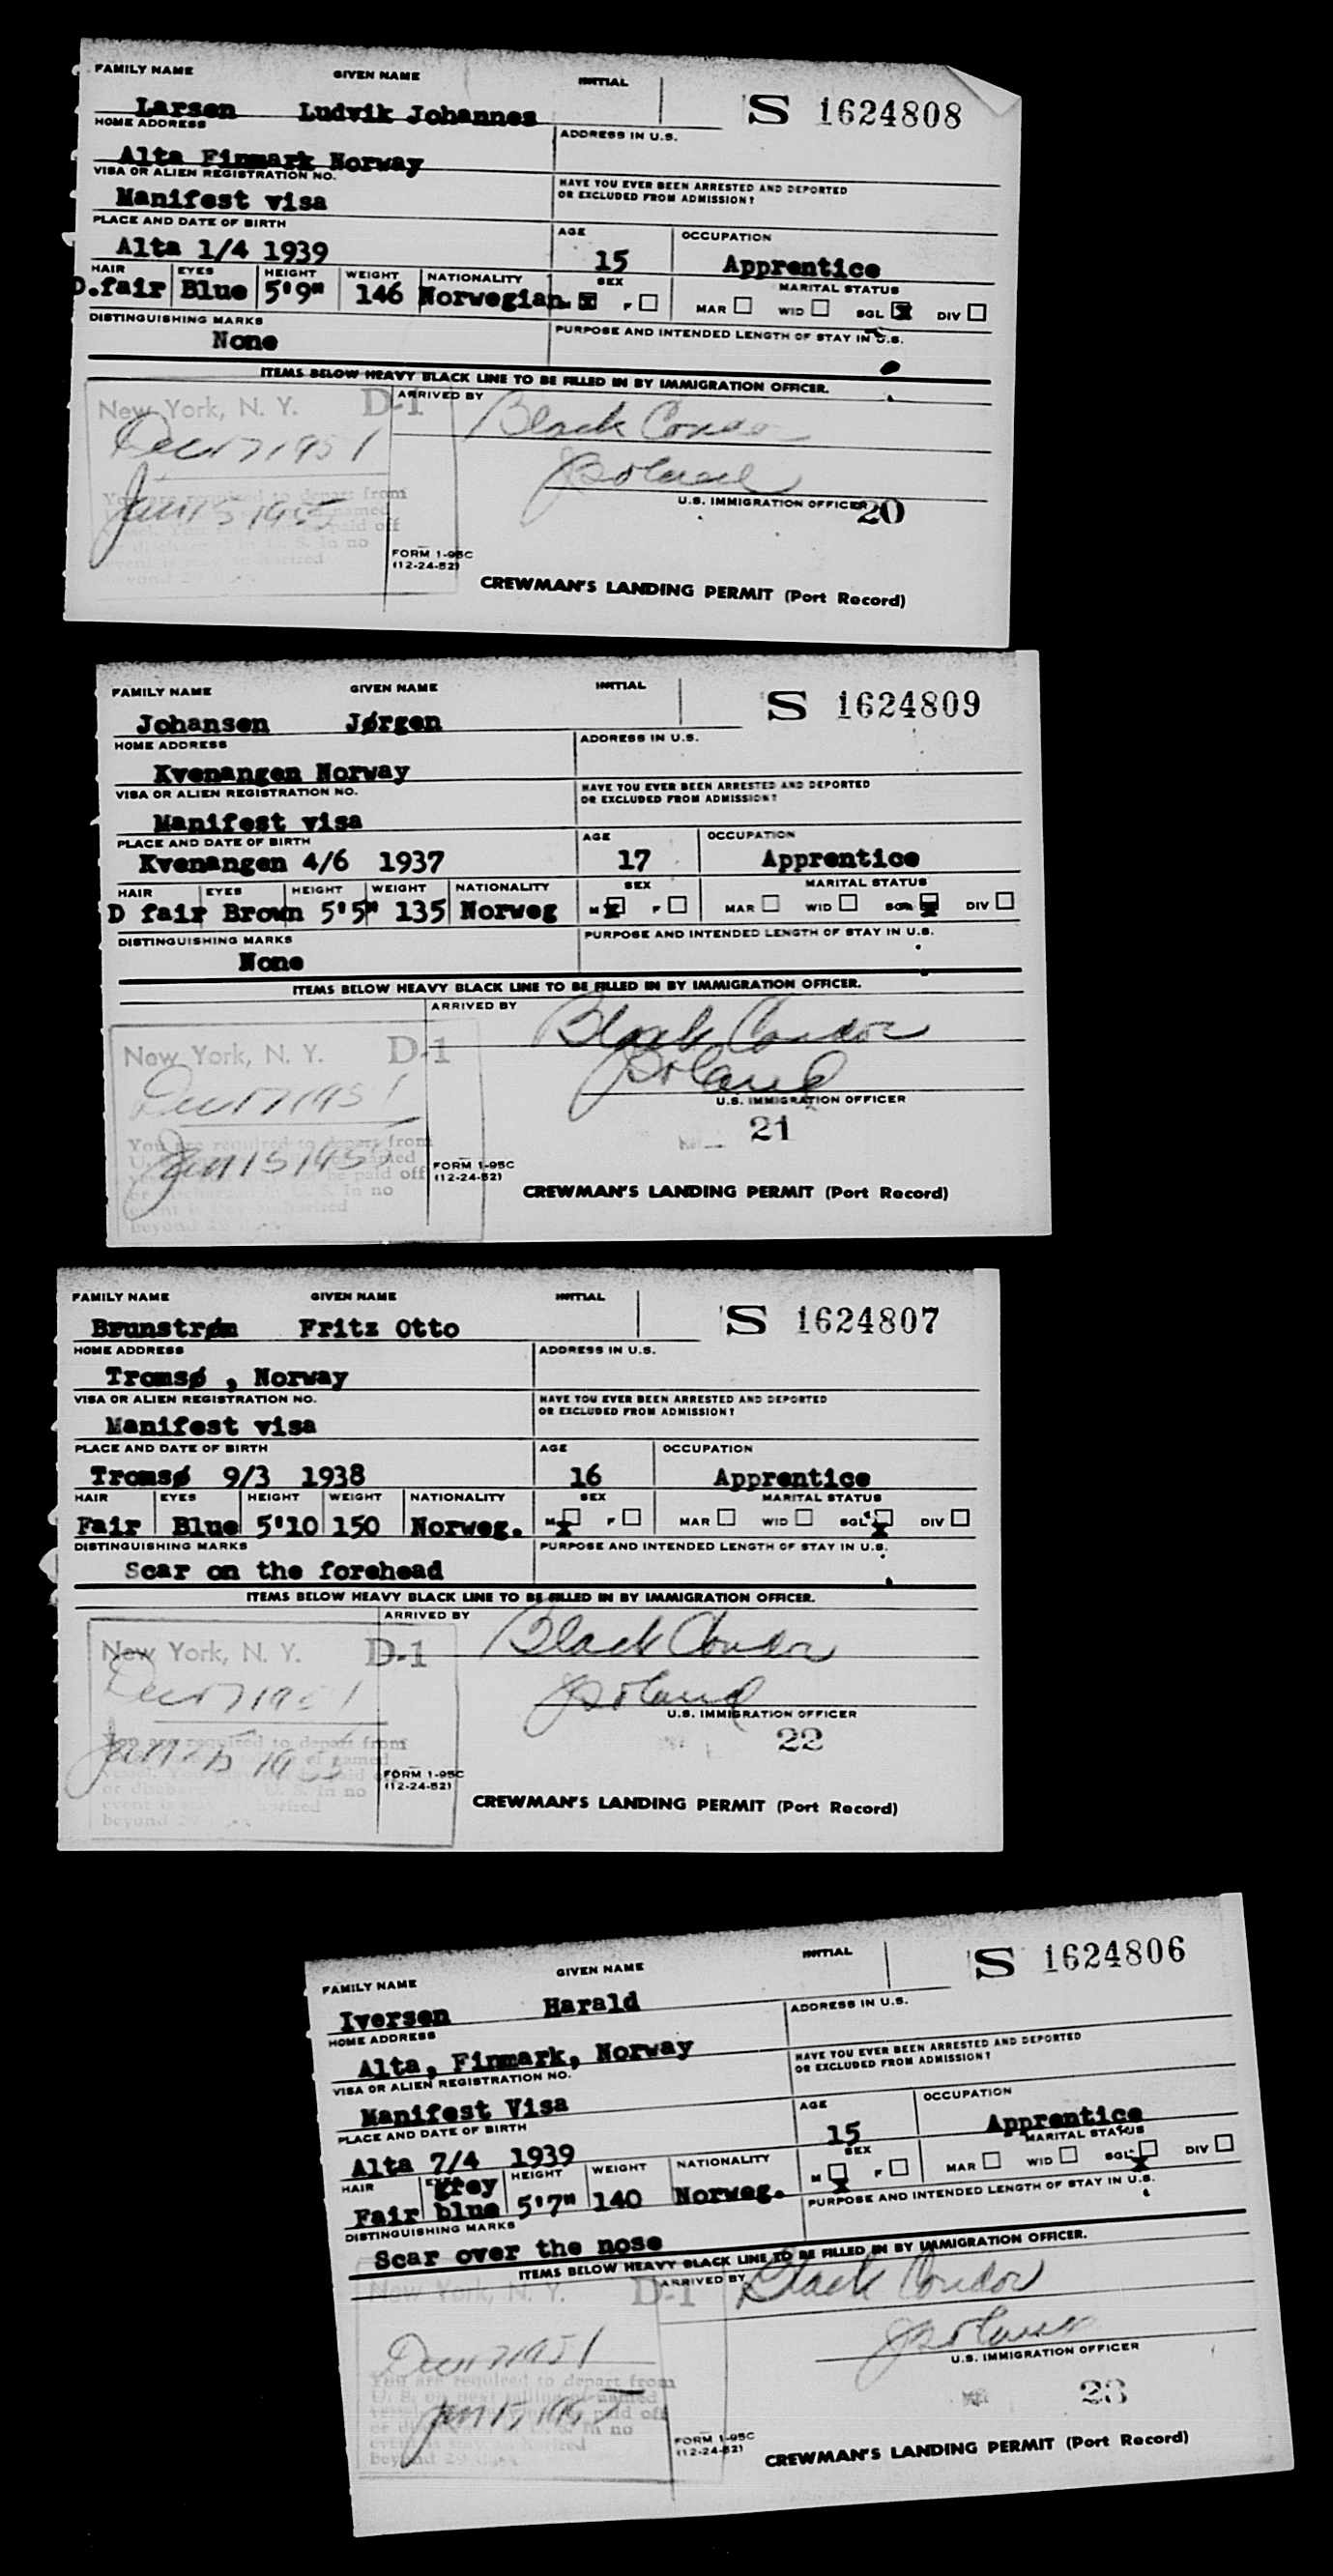 FAMILY NAME GIVEN NAME INITIAL
S 1624808
Larsen Ludvik Johannes
HOME ADDRESS ADDRESS IN U.S.
Alta Finmark Norway
VISA OR ALIEN REGISTRATION NO. HAVE YOU EVER BEEN ARRESTED AND DEPORTED
OR EXCLUDED FROM ADMISSION?
Manifest visa
PLACE AND DATE OF BIRTH AGE OCCUPATION
Alta 1/4 1939 15 Apprentice
HAIR EYES HEIGHT WEIGHT NATIONALITY SEX MARITAL STATUS
D.fair Blue 5'9" 146 Norwegian. F MAR WID SGL DIV
DISTINGUISHING MARKS PURPOSE AND INTENDED LENGTH OF STAY IN U.S.
None
ITEMS BELOW HEAVY BLACK LINE TO BE FILLED IN BY IMMIGRATION OFFICER.
New York, N. Y. D-1 ARRIVED BY Black
You are required to depart from
U.S. IMMIGRATION OFFICER
20
FORM I-95C
(12-24-52)
CREWMAN'S LANDING PERMIT (Port Record)
FAMILY NAME GIVEN NAME INITIAL
S 1624809
Johansen Jørgen
HOME ADDRESS ADDRESS IN U.S.
Kvenangen Norway
VISA OR ALIEN REGISTRATION NO. HAVE YOU EVER BEEN ARRESTED AND DEPORTED
OR EXCLUDED FROM ADMISSION?
Manifest visa
PLACE AND DATE OF BIRTH AGE OCCUPATION
Kvenangen 4/6 1937 17 Apprentice
HAIR EYES HEIGHT WEIGHT NATIONALITY SEX MARITAL STATUS
D fair Brown 5'5" 135 Norweg M F MAR WID SGL DIV
DISTINGUISHING MARKS PURPOSE AND INTENDED LENGTH OF STAY IN U.S.
None
ITEMS BELOW HEAVY BLACK LINE TO BE FILLED IN BY IMMIGRATION OFFICER.
ARRIVED BY Black Condor
New York, N. Y. D-1
U.S. IMMIGRATION OFFICER
You are required to depart from
21
FORM I-95C
(12-24-52)
CREWMAN'S LANDING PERMIT (Port Record)
FAMILY NAME GIVEN NAME INITIAL
S 1624807
Brunstrøm Fritz Otto
HOME ADDRESS ADDRESS IN U.S.
Tromsø , Norway
VISA OR ALIEN REGISTRATION NO. HAVE YOU EVER BEEN ARRESTED AND DEPORTED
OR EXCLUDED FROM ADMISSION?
Manifest visa
PLACE AND DATE OF BIRTH AGE OCCUPATION
Tromsø 9/3 1938 16 Apprentice
HAIR EYES HEIGHT WEIGHT NATIONALITY SEX MARITAL STATUS
Fair Blue 5'10 150 Norweg. M F MAR WID SGL DIV
DISTINGUISHING MARKS PURPOSE AND INTENDED LENGTH OF STAY IN U.S.
Scar on the forehead
ITEMS BELOW HEAVY BLACK LINE TO BE FILLED IN BY IMMIGRATION OFFICER.
ARRIVED BY Black Condor
New York, N. Y. D-1
U.S. IMMIGRATION OFFICER
22
FORM I-95C
(12-24-52)
CREWMAN'S LANDING PERMIT (Port Record)
FAMILY NAME GIVEN NAME INITIAL
S 1624806
Iversen Harald
HOME ADDRESS ADDRESS IN U.S.
Alta, Finmark, Norway
VISA OR ALIEN REGISTRATION NO. HAVE YOU EVER BEEN ARRESTED AND DEPORTED
OR EXCLUDED FROM ADMISSION?
Manifest Visa
PLACE AND DATE OF BIRTH AGE OCCUPATION
Alta 7/4 1939 15 Apprentice
HAIR grey HEIGHT WEIGHT NATIONALITY SEX MARITAL STATUS
Fair blue 5'7" 140 Norweg. M F MAR WID SGL DIV
DISTINGUISHING MARKS PURPOSE AND INTENDED LENGTH OF STAY IN U.S.
Scar over the nose
ITEMS BELOW HEAVY BLACK LINE TO BE FILLED IN BY IMMIGRATION OFFICER.
New York, N. Y. D-1 ARRIVED BY Black Condor
U.S. IMMIGRATION OFFICER
You are required to depart from
23
FORM I-95C
(12-24-52)
CREWMAN'S LANDING PERMIT (Port Record)